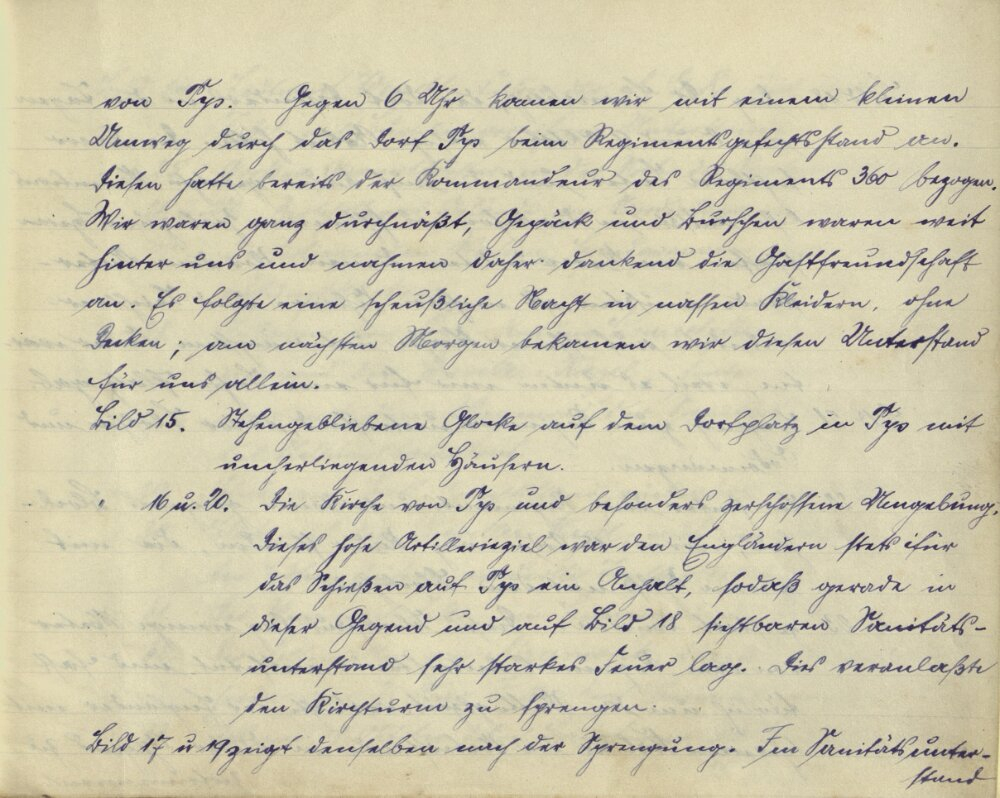 von Pys. Gegen 6 Uhr kamen wir mit einem kleinen
Umweg durch das Dorf Pys beim Regimentsgefechtsstand an.
Diesen hatte bereits der Kommandeur des Regiments 360 bezogen.
Wir waren ganz durchnäßt, Gepäck und Burschen waren weit
hinter uns und nahmen daher dankend die Gastfreundschaft
an. Es folgte eine scheußliche Nacht in nassen Kleidern, ohne
Decken; am nächsten Morgen bekamen wir diesen Unterstand
für uns allein.
Bild 15. Stehengebliebene Glocke auf dem Dorfplatz in Pys mit
umherliegenden Häusern.
" 16 u. 20. Die Kirche von Pys und besonders zerschossene Umgebung.
Dieses hohe Artillerieziel war den Engländern stets für
das Schießen auf Pys ein Anhalt, sodaß gerade in
dieser Gegend und auf Bild 18 sichtbaren Sanitäts-
unterstand sehr starkes Feuer lag. Dies veranlaßte
den Kirchturm zu sprengen.
Bild 17 u 19 zeigt denselben nach der Sprengung. Im Sanitätsunter-
stand